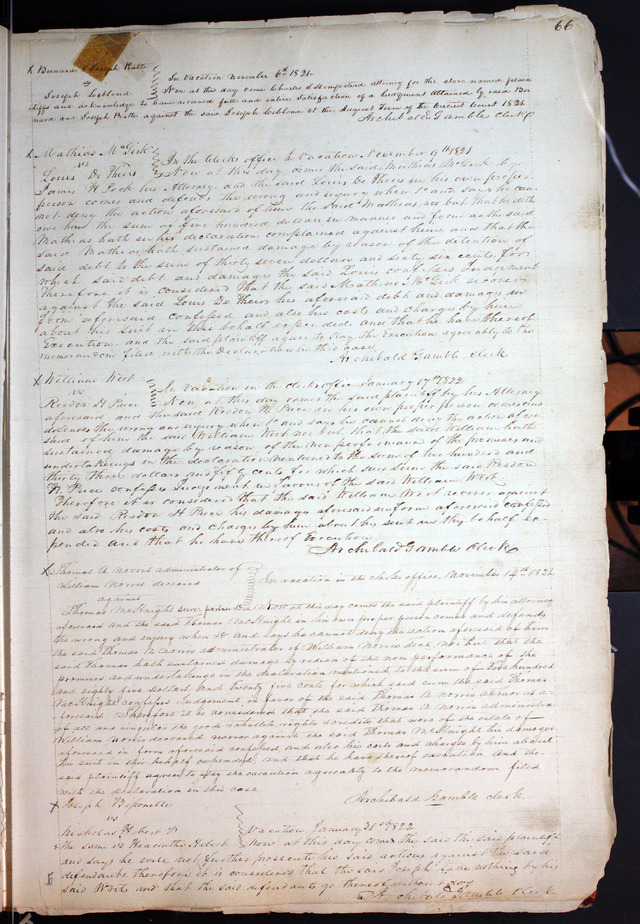 66
x Barnard & Joseph Pratte
vs
Joseph Leblond
In Vacation November 6th 1821
Now at this day come Charles S Hempstead attorney for the above named plain
tiffs and acknowledge to have received full and entire Satisfaction of a Judgement obtained by said Bar
nard and Joseph Pratte against the said Joseph Leblond at the August Term of the Circuit Court 1821.
Archibald Gamble clerk
x Mathias McGirk
vs
Louis De Thiers
In the Clerks office In Vacation November 9th 1821
Now at this day comes the said Mathias McGirk by
James H Peck his Attorney and the said Louis De Thiers in his own proper
person comes and defends the wrong and injury when &c and says he can
not deny the action aforesaid of him the said Mathias nor but that he doth
owe him the sum of five hundred dollars in manner and form as the said
Mathias hath in his declaration complained against him and that the
said Mathias hath sustained damage by reason of the detention of
said debt to the sum of thirty seven dollars and sixty six cents for
which said debt and damages the said Louis confesses Judgement
Therefore it is considered that the said Mathias McGirk recover
against the said Louis De Thiers his aforesaid debt and damages in
form aforesaid confessed and also his costs and charges by him
about his suit in this behalf expended, and that he have thereof
Execution. and the said plaintiff agrees to stay the Execution agreeably to the
memorandum filed with the Declaration in this case
Archibald Gamble clerk
x William Wort
vs
Resdon H Price
In vacation in the clerks office January 17th 1822
Now at this day comes the said plaintiff by his Attorney
aforesaid and the said Resdon H Price in his own proper person comes &
defends the wrong and injury when &c and says he cannot deny the action afore
said of him the said William Wort nor but that the said William hath
sustained damage by reason of the non performance of the promises and
undertakings in the declaration mentioned to the sum of two hundred and
thirty three dollars and fifty cents for which said sum the said Resdon
H Price confesses Judgement in favour of the said William Wort
Therefore it is considered that the said William Wort recover against
the said Resdon H Price his damages aforesaid in form aforesaid confessed
and also his costs and charges by him about his suit in this behalf ex
pended and that he have thereof execution.
Archibald Gamble Clerk
x Thomas A Norris administrator of
William Norris deceased
against
In vacation in the clerks office, November 14th 1821
Thomas McKnight surv. partner &c Now at this day comes the said plaintiff by his attorney
aforesaid and the said Thomas McKnight in his own proper person comes and defends
the wrong and injury when &c and says he cannot deny the action aforesaid of him
the said Thomas A Norris administrator of William Norris decd, nor but that the
said Thomas hath sustained damage by reason of the non performance of the
promises and undertakings in the declaration mentioned to the sum of Five hundred
and eighty five Dollars and twenty five cents for which said sum the said Thomas
McKnight confesses Judgement in favor of the said Thomas A Norris admor as a-
foresaid. Therefore it is considered that the said Thomas A Norris administrator
of all and singular the goods & chattels, rights & credits that were of the estate of
William Norris deceased recover against the said Thomas McKnight his damages
aforesaid in form aforesaid confessed, and also his costs and charges by him about
his suit in this behalf expended, and that he have thereof execution. And the
said plaintiff agrees to stay the execution agreeably to the memorandum filed
with the declaration in this case.
Archibald Gamble clerk.
x Joseph
vs
Nicholas Hebert
The same vs Hiacinthe Hebert
Vacation January 31st 1822
Now at this day comes the said plaintiff
and says he will not further prosecute his said actions against the said
defendants therefore it is considered that the said Joseph take nothing by his
said Writs and that the said defendants go thereof without day
Archibald Gamble Clerk